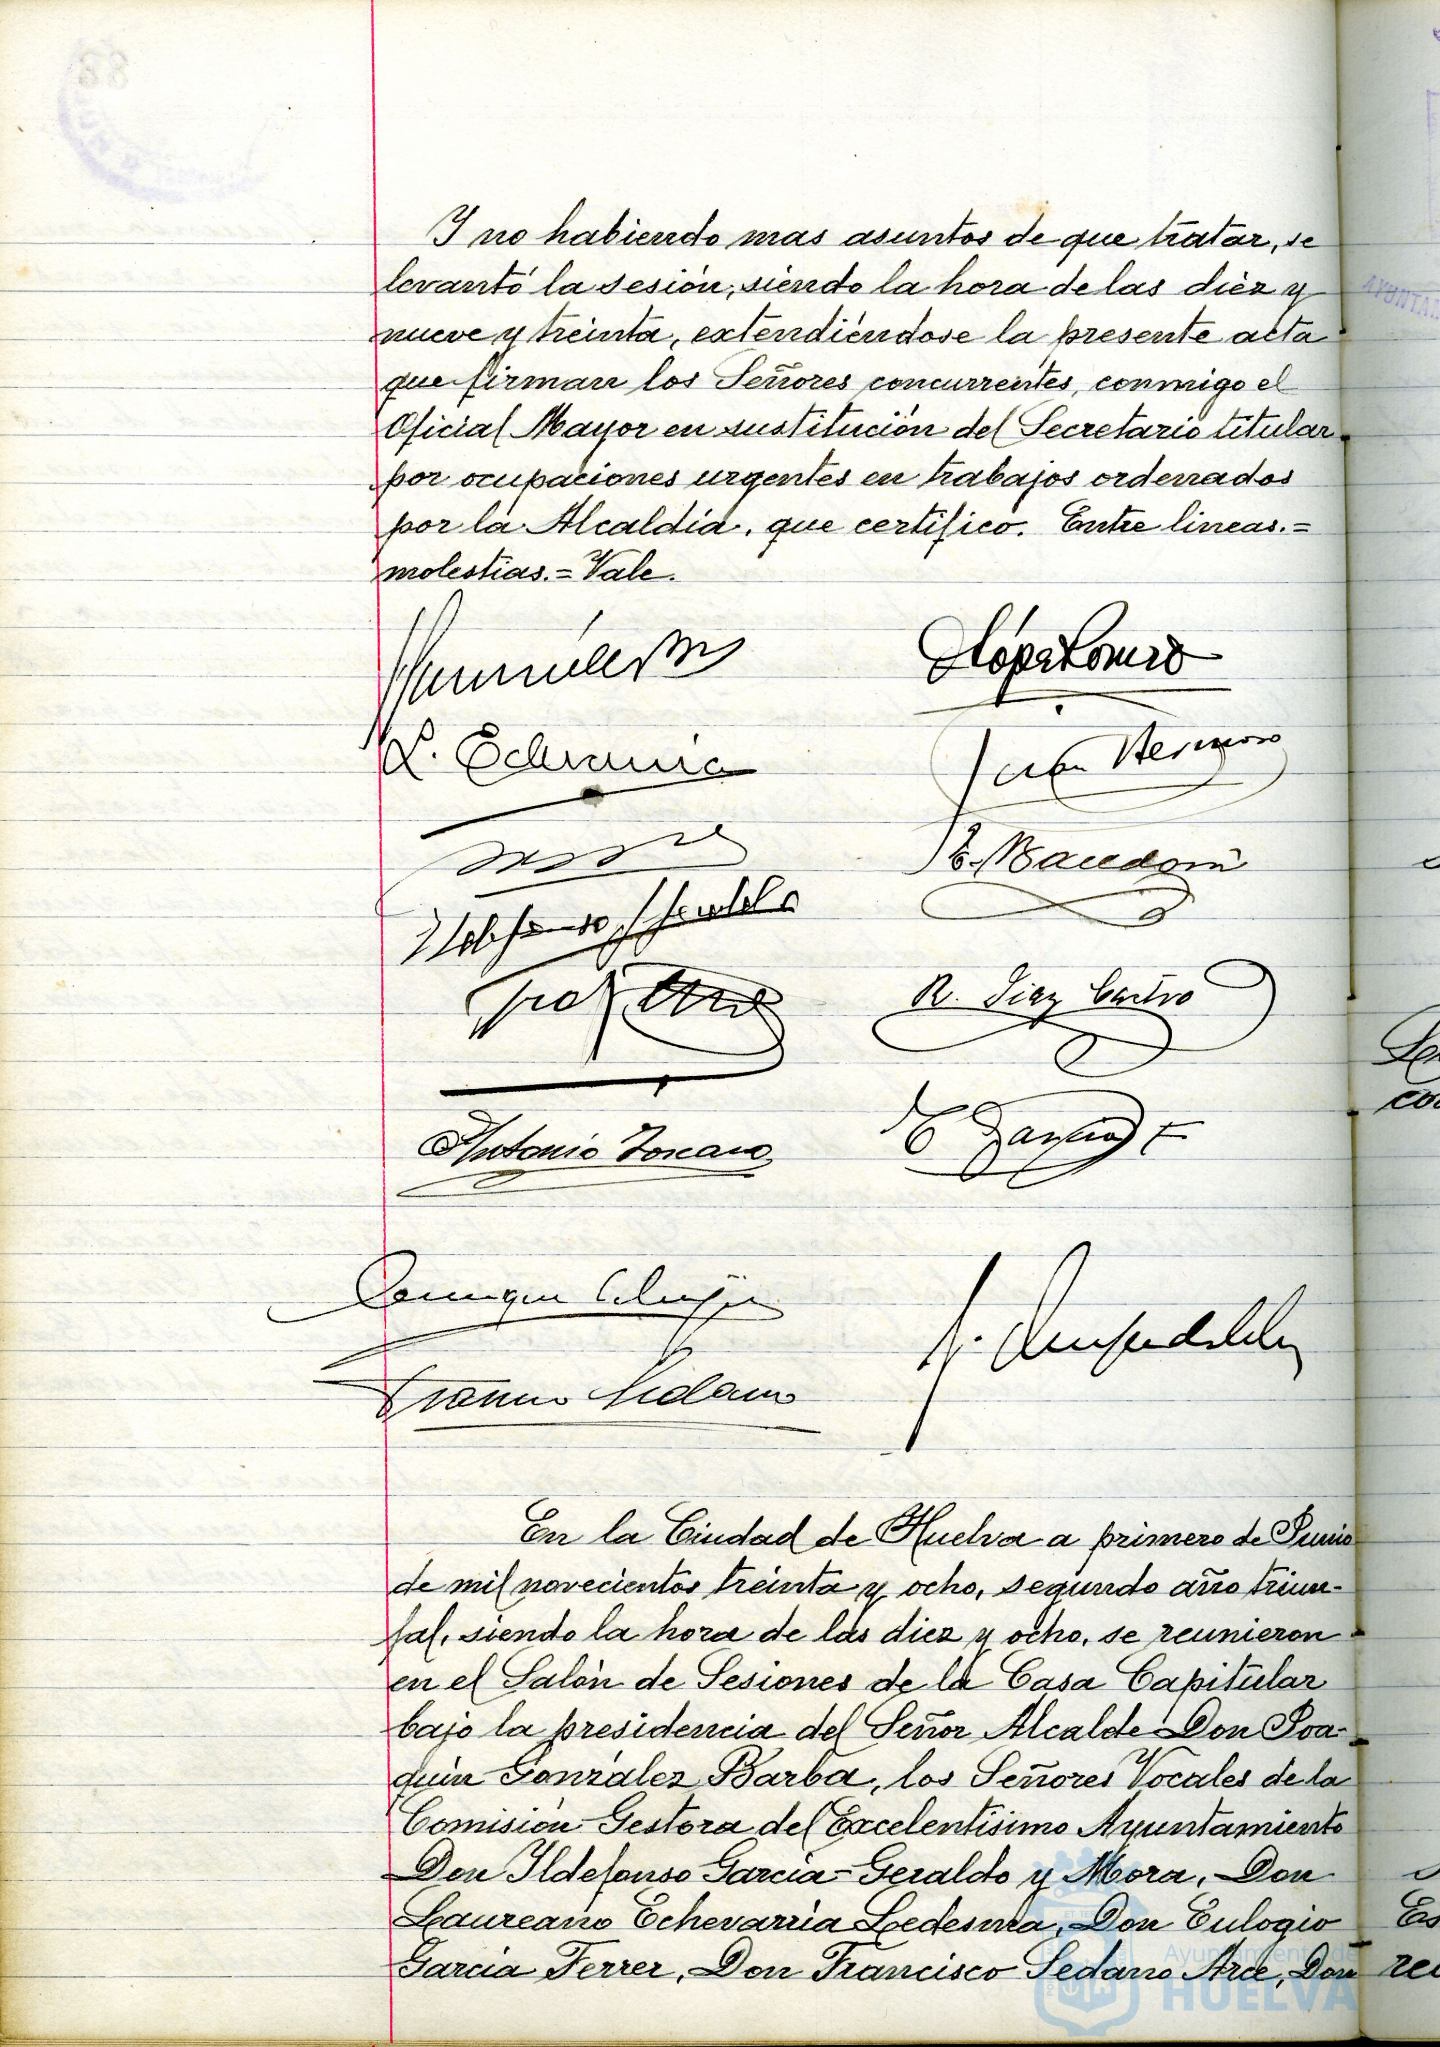 Y no habiendo mas asuntos de que tratar, se
levantó la sesión, siendo la hora de las diez y
nueve y treinta, extendiéndose la presente acta
que firman los Señores concurrentes, conmigo el
Oficial Mayor en sustitución del Secretario titular
por ocupaciones urgentes en trabajos ordenados
por la Alcaldía, que certifico. Entre lineas.=
molestias.= Vale.
L. Echevarria
Juan Hermoso
R. Diaz Castro
Antonio Toscano
Francisco Sedano
En la Ciudad de Huelva a primero de Junio
de mil novecientos treinta y ocho, segundo año triun-
fal, siendo la hora de las diez y ocho, se reunieron
en el Salón de Sesiones de la Casa Capitular
bajo la presidencia del Señor Alcalde Don Joa-
quin González Barba, los Señores Vocales de la
Comisión Gestora del Excelentisimo Ayuntamiento
Don Ildefonso Garcia-Geraldo y Mora, Don
Laureano Echevarria Ledesma, Don Eulogio
Garcia Ferrer, Don Francisco Sedano Arce, Don
Ayuntamiento de
HUELVA